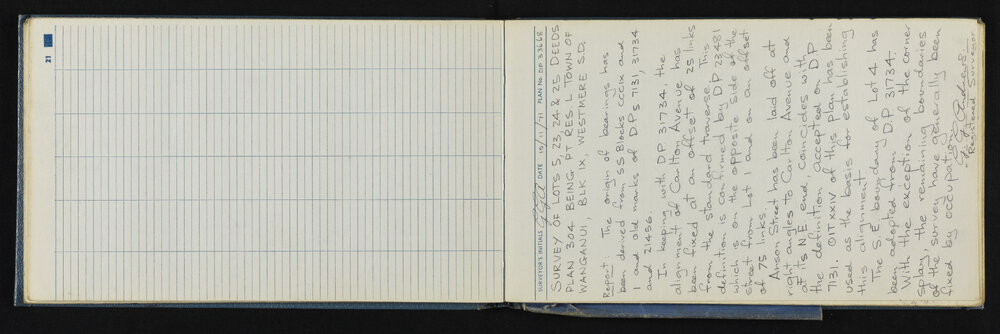 21
SURVEYOR'S INITIALS DATE 10/11/71 PLAN No. DP 33668
SURVEY OF LOTS 5, 23, 24 & 25 DEEDS
PLAN 304 BEING PT RES L TOWN OF
WANGANUI, BLK IX, WESTMERE S.D.
Report: The origin of bearings has
been derived from SS Blocks CCCIX and
1 and old marks of D.Ps 7131, 31734
and 21456.
In keeping with D.P. 31734 the
alignment of Carlton Avenue has
been fixed at an offset of 25 links
from the standard traverse. This
definition is confirmed by D.P 23481
which is on the opposite side of the
street from Lot 1 and on an offset
of 75 links.
Anson Street has been laid off at
right angles to Carlton Avenue and
at its N.E end, coincides with
the definition accepted on DP
7131. OIT XXIV of this plan has been
used as the basis for establishing
this alignment
The S.E boundary of Lot 4 has
been adopted from D.P. 31734.
With the exception of the corner
splay the remaining boundaries
of the survey have generally been
fixed by occupation.
Andrews
Registered Surveyor